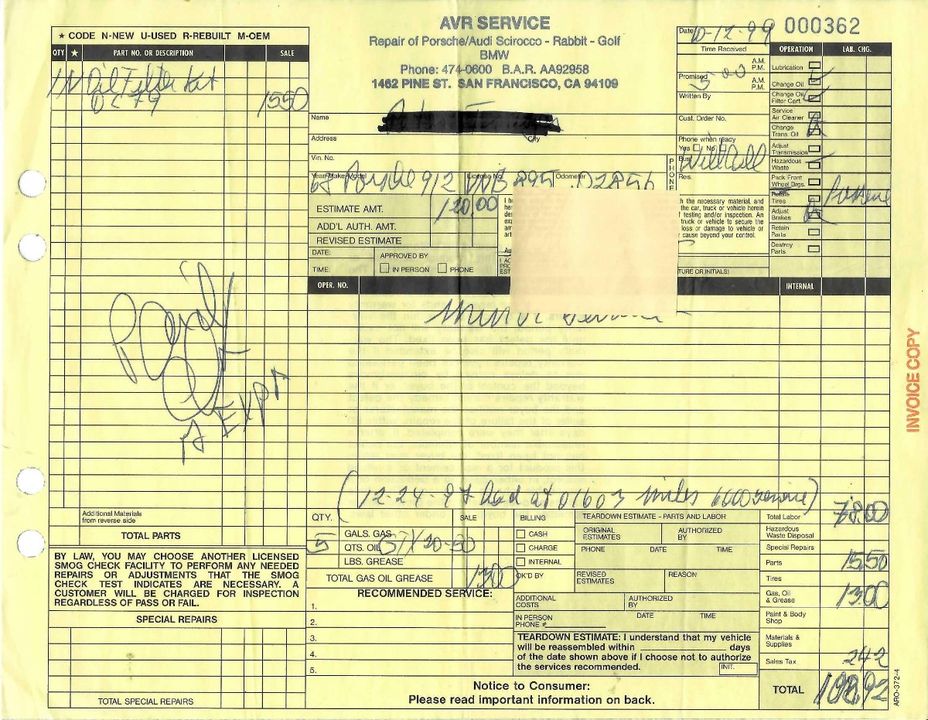 ★ CODE N-NEW U-USED R-REBUILT M-OEM
QTY ★ PART NO. OR DESCRIPTION SALE
1 N Oil Filter Kit 15 50
OC 79
AVR SERVICE
Repair of Porsche/Audi Scirocco - Rabbit - Golf
BMW
Phone: 474-0600 B.A.R. AA92958
1462 PINE ST. SAN FRANCISCO, CA 94109
Date 10-12-99 000362
Time Received A.M. P.M.
Promised 5 00 A.M. P.M.
Written By
Cust. Order No.
Phone when ready
Yes No
Bus. will call
Res.
PHONE
Name
Address City
Vin. No.
Year-Make-Model License No. Odometer
68 Porsche 912 VNB 295 02856
ESTIMATE AMT. 120.00
ADD'L AUTH. AMT.
REVISED ESTIMATE
DATE: APPROVED BY
TIME: IN PERSON PHONE
the necessary material, and
the car, truck or vehicle herein
testing and/or inspection. An
truck or vehicle to secure the
loss or damage to vehicle or
cause beyond your control.
TURE OR INITIALS)
OPERATION LAB. CHG.
Lubrication
Change Oil
Change Oil Filter Cart.
Service Air Cleaner
Change Trans. Oil
Adjust Transmission
Hazardous Waste
Pack Front Wheel Brgs.
Rotate Tires
Adjust Brakes
Retain Parts
Destroy Parts
OPER. NO. INTERNAL
Minor Service
Paid
A EXP
INVOICE COPY
(12-24-97 had at 01603 miles 6000 service)
Additional Materials
from reverse side
TOTAL PARTS
BY LAW, YOU MAY CHOOSE ANOTHER LICENSED
SMOG CHECK FACILITY TO PERFORM ANY NEEDED
REPAIRS OR ADJUSTMENTS THAT THE SMOG
CHECK TEST INDICATES ARE NECESSARY. A
CUSTOMER WILL BE CHARGED FOR INSPECTION
REGARDLESS OF PASS OR FAIL.
SPECIAL REPAIRS
TOTAL SPECIAL REPAIRS
QTY. SALE
GALS. GAS
5 QTS. OIL GTX 20-50
LBS. GREASE
TOTAL GAS OIL GREASE 13 00
RECOMMENDED SERVICE:
1.
2.
3.
4.
5.
BILLING
CASH
CHARGE
INTERNAL
OK'D BY
TEARDOWN ESTIMATE - PARTS AND LABOR
ORIGINAL ESTIMATES AUTHORIZED BY
PHONE DATE TIME
REVISED ESTIMATES REASON
ADDITIONAL COSTS AUTHORIZED BY
IN PERSON PHONE # DATE TIME
TEARDOWN ESTIMATE: I understand that my vehicle
will be reassembled within days
of the date shown above if I choose not to authorize
the services recommended. INIT.
Notice to Consumer:
Please read important information on back.
Total Labor 78.00
Hazardous Waste Disposal
Special Repairs
Parts 15 50
Tires
Gas, Oil & Grease 13.00
Paint & Body Shop
Materials & Supplies
Sales Tax 2 42
TOTAL 108.92
ARO-372-4